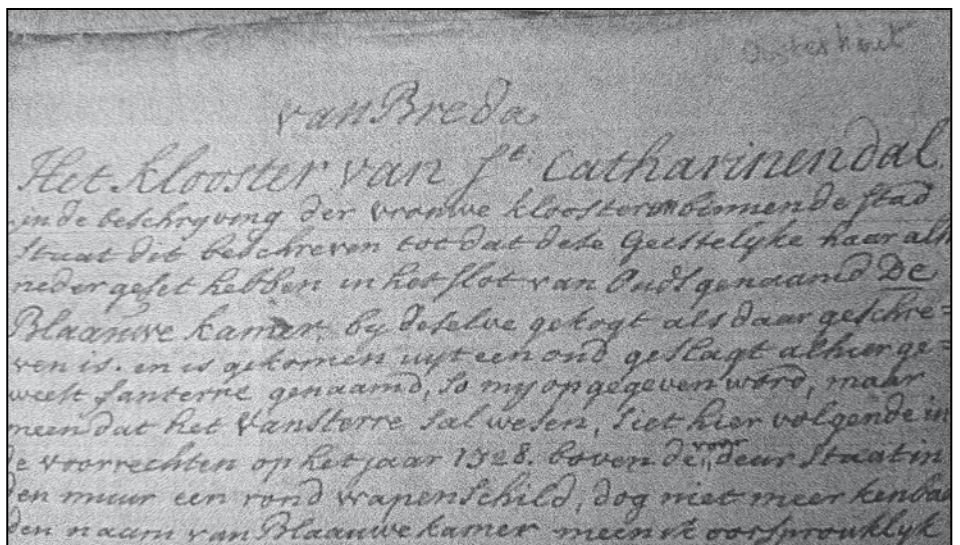 Oosterhout
van Breda
Het Klooster van St. Catharinendal.
in de beschryving der vrouwe kloosters binnen de stad
staat dit beschreven tot dat dese Geestelyke haar alh
neder geset hebben in het slot van Ouds genaamd De
Blaauwe kamer, by deselve gekogt als daar geschre=
ven is. en is gekomen uyt een oud geslagt alhier ge=
weest Santerre genaamd, so my opgegeven word, maar
meen dat het Vansterre sal wesen, siet hier volgende in
de voorrechten op het jaar 1328. boven de voor deur staat in
den muur een rond wapenschild, dog niet meer kenbaa
den naam van Blaauwe kamer meen ik oorspronklyk